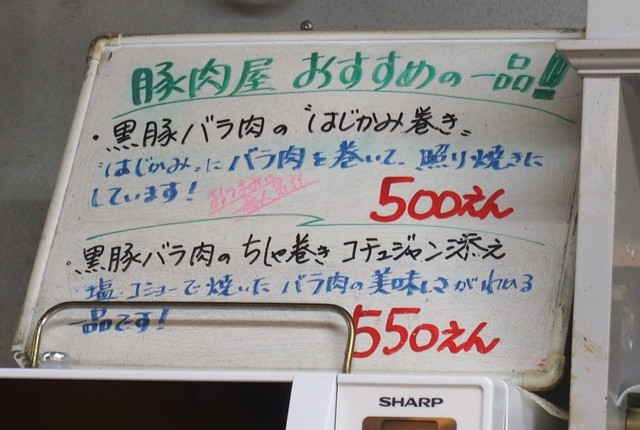 豚肉屋 おすすめの一品!!
・黒豚バラ肉の "はじかみ巻き"
"はじかみ"に バラ肉を巻いて、照り焼きに
しています!
おつまみに
大人気!!
500えん
・黒豚バラ肉の ちしゃ巻き コチュジャン添え
・塩・コショーで焼いた バラ肉の美味しさがわかる
一品です!
550えん
SHARP